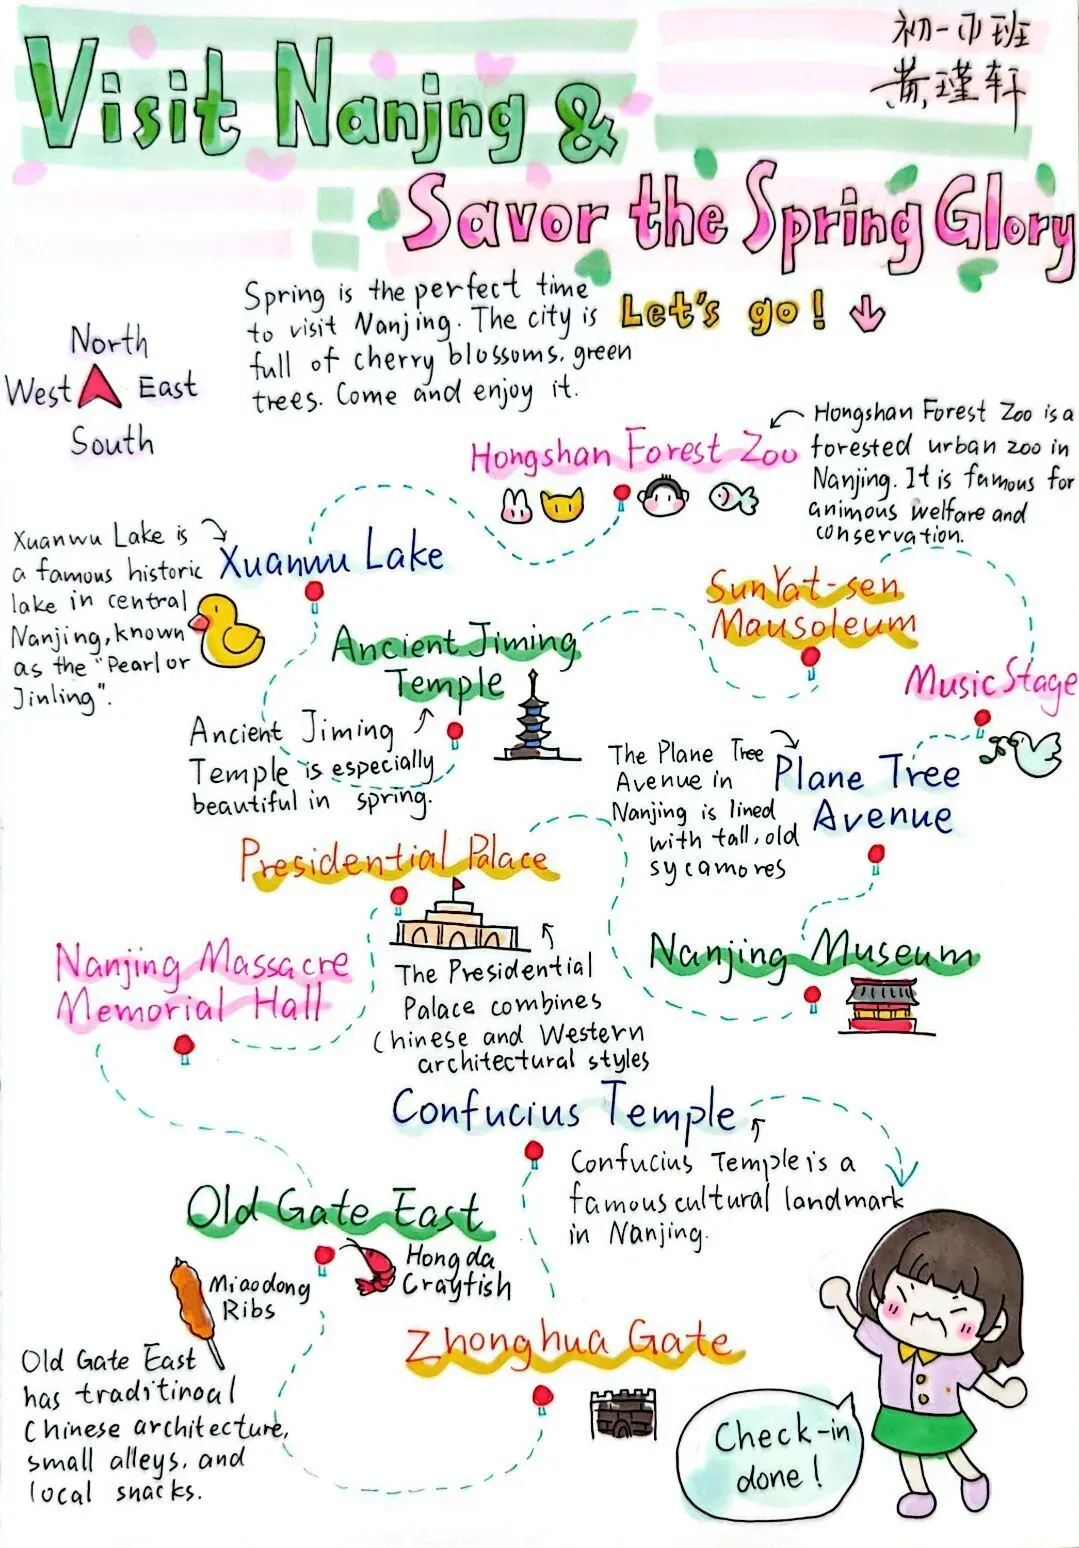 初一(1)班
黄瑾轩
Visit Nanjng &
Savor the Spring Glory
Spring is the perfect time
to visit Nanjing. The city is
full of cherry blossoms, green
trees. Come and enjoy it.
Let's go!
North
West East
South
Hongshan Forest Zoo
Hongshan Forest Zoo is a
forested urban zoo in
Nanjing. It is famous for
animous welfare and
conservation.
Xuanwu Lake is
a famous historic
lake in central
Nanjing, known
as the "Pearl or
Jinling".
Xuanwu Lake
Ancient Jiming
Temple
Ancient Jiming
Temple is especially
beautiful in spring.
Sun Yat-sen
Mausoleum
Music Stage
The Plane Tree
Avenue in
Nanjing is lined
with tall, old
sycamores
Plane Tree
Avenue
Presidential Palace
The Presidential
Palace combines
Chinese and Western
architectural styles
Nanjing Museum
Nanjing Massacre
Memorial Hall
Confucius Temple
Confucius Temple is a
famous cultural landmark
in Nanjing.
Old Gate East
Miaodong
Ribs
Hongda
Crayfish
Old Gate East
has traditinoal
Chinese architecture,
small alleys, and
local snacks.
Zhonghua Gate
Check-in
done!